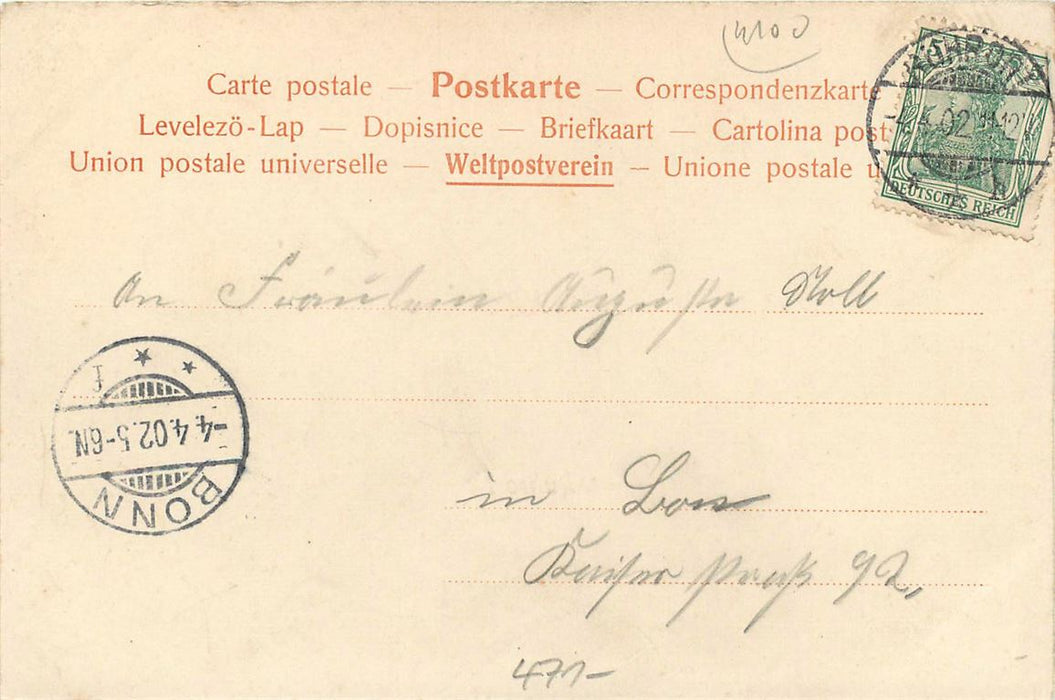 4100
Carte postale — Postkarte — Correspondenzkarte
Levelező-Lap — Dopisnice — Briefkaart — Cartolina post
Union postale universelle — Weltpostverein — Unione postale u
02
DEUTSCHES REICH
An Fräulein Auguste Noll
* * f
-4.4.02.5-6N.
BONN
in Bonn
Kaiser straß 92,
471-